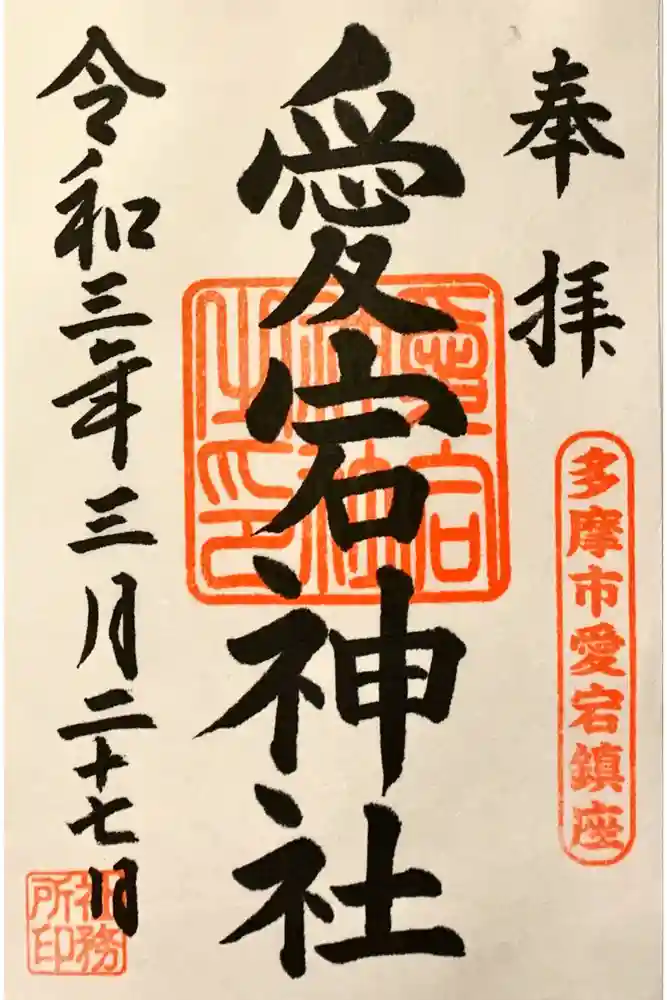 奉拝
多摩市愛宕鎮座
愛宕神社
愛宕
神社
之印
令和三年三月二十七日
社務
所印